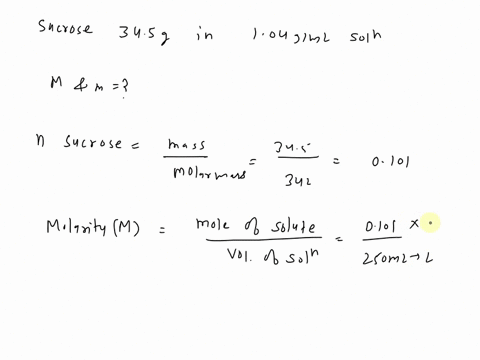 Sucrose 34.5g in 1.04g/mL solⁿ
M & m = ?
n sucrose = mass / molar mass = 34.5 / 342 = 0.101
Molarity (M) = mole of solute / Vol. of solⁿ = 0.101 × / 250mL → L